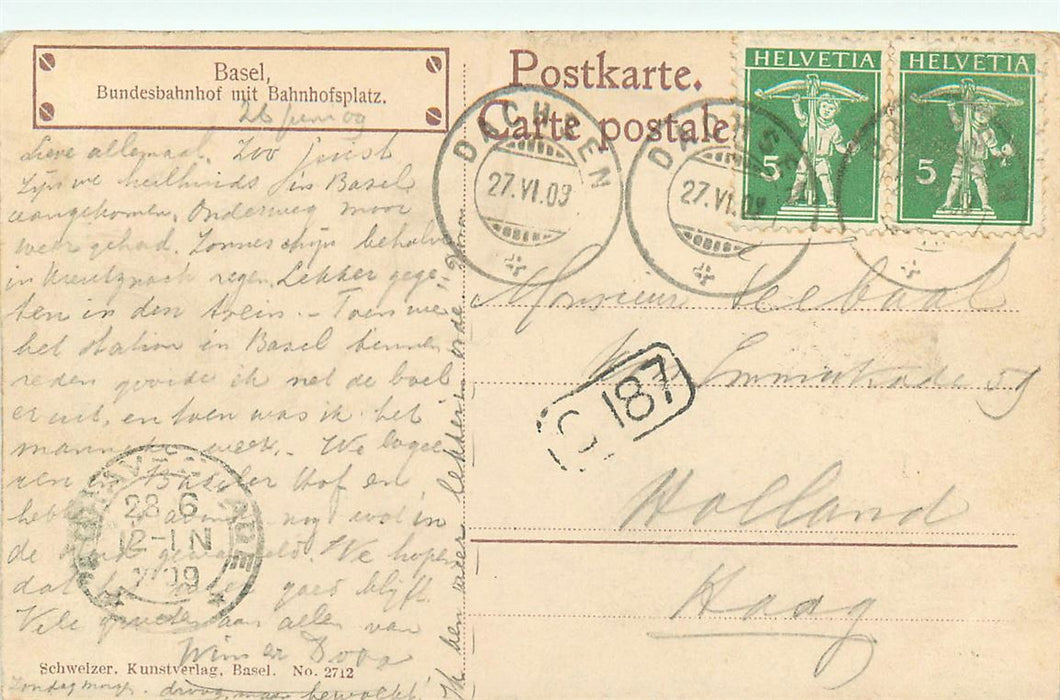 Basel,
Bundesbahnhof mit Bahnhofsplatz.
Postkarte.
Carte postale
HELVETIA
HELVETIA
5
5
DACHSEN
27.VI.09
DACHSEN
27.VI.09
26 Juni 09
Lieve allemaal. Zoo juist
Zijn we heelhuids in Basel
aangekomen. Onderweg mooi
weer gehad. Zonneschijn behalve
in Kreutznach regen. Lekker gege-
ten in den trein. - Toen we
het station in Basel binnen-
reden gooide ik net de boel
er uit, en toen was ik het
We loge-
ren in Basler Hof en
nog wat in
de
We hopen
dat het goed blijft
Vele groeten aan allen van
Zondag morg. droog, maar bewolkt.
Ik ben weer lekker in orde
Monsieur
59
Holland
Haag
187
'S GRAVENHAGE
28 6
12-1N
09
Schweizer. Kunstverlag, Basel. No. 2712